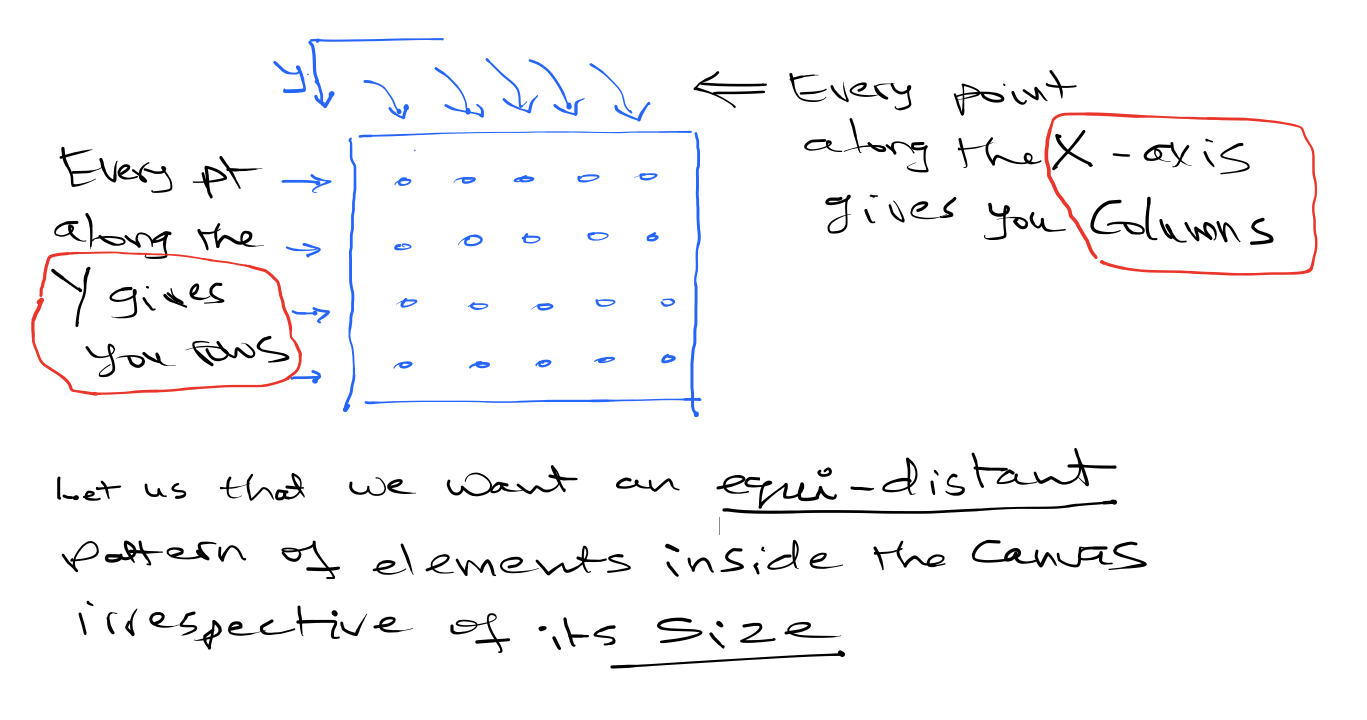 y
Every point
along the X-axis
gives you Columns
Every pt
along the
Y gives
you rows
Let us that we want an equi-distant
pattern of elements inside the Canvas
irrespective of its Size